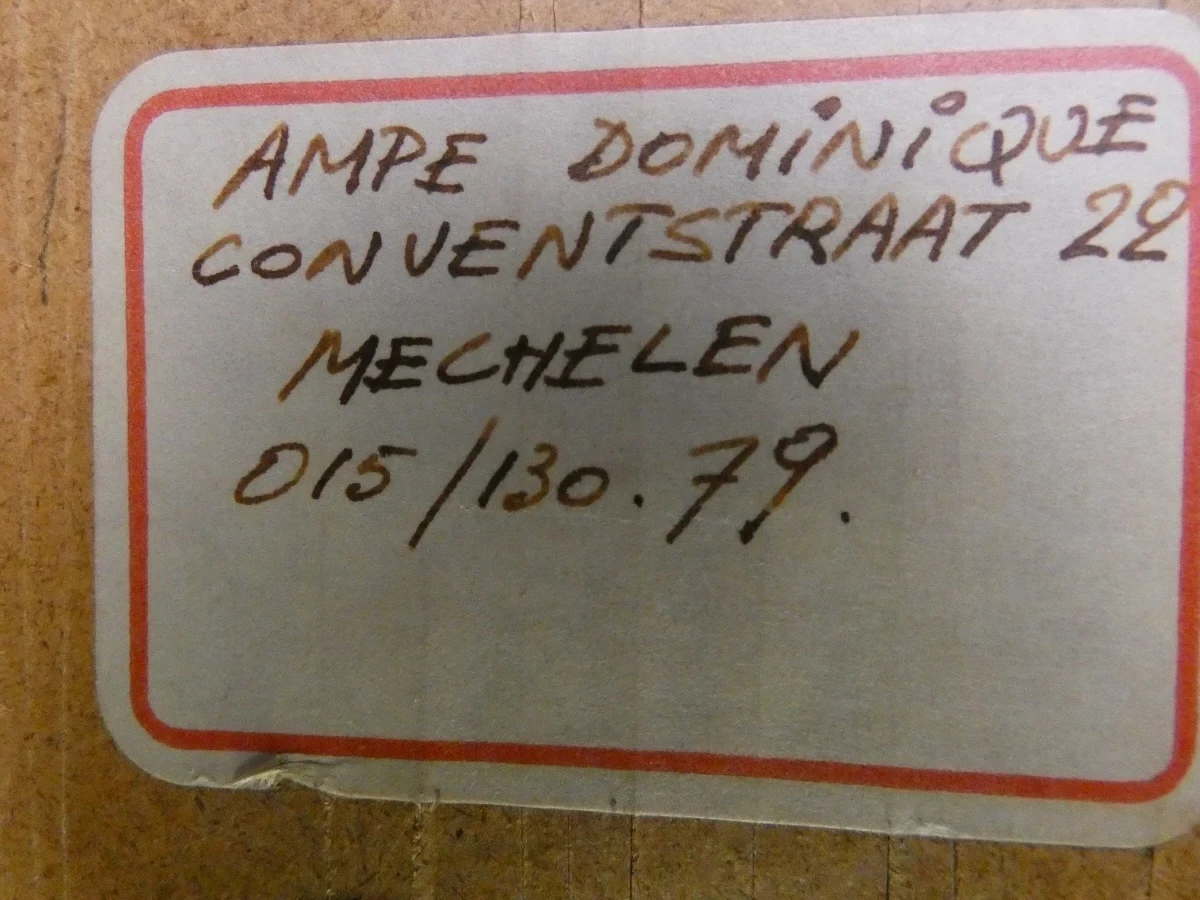 AMPE DOMiNiQUE
CONVENTSTRAAT 22
MECHELEN
015/130.79.